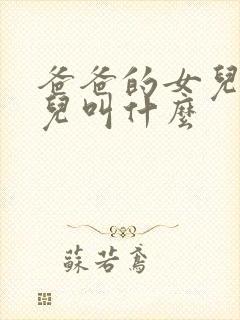 爸爸的女兒
兒叫什麼
蘇若鳶